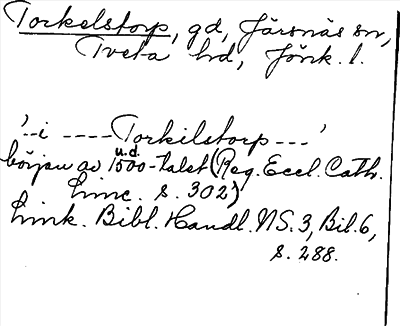 Torkelstorp, gd, Järsnäs sn,
Tveta hd, Jönk. l.
'--i ---- Torkilstorp ---'
u.d.
början av 1500-talet (Reg. Eccl. Cath.
Linc. s. 302)
Link. Bibl. Handl. NS. 3, Bil. 6,
s. 288.